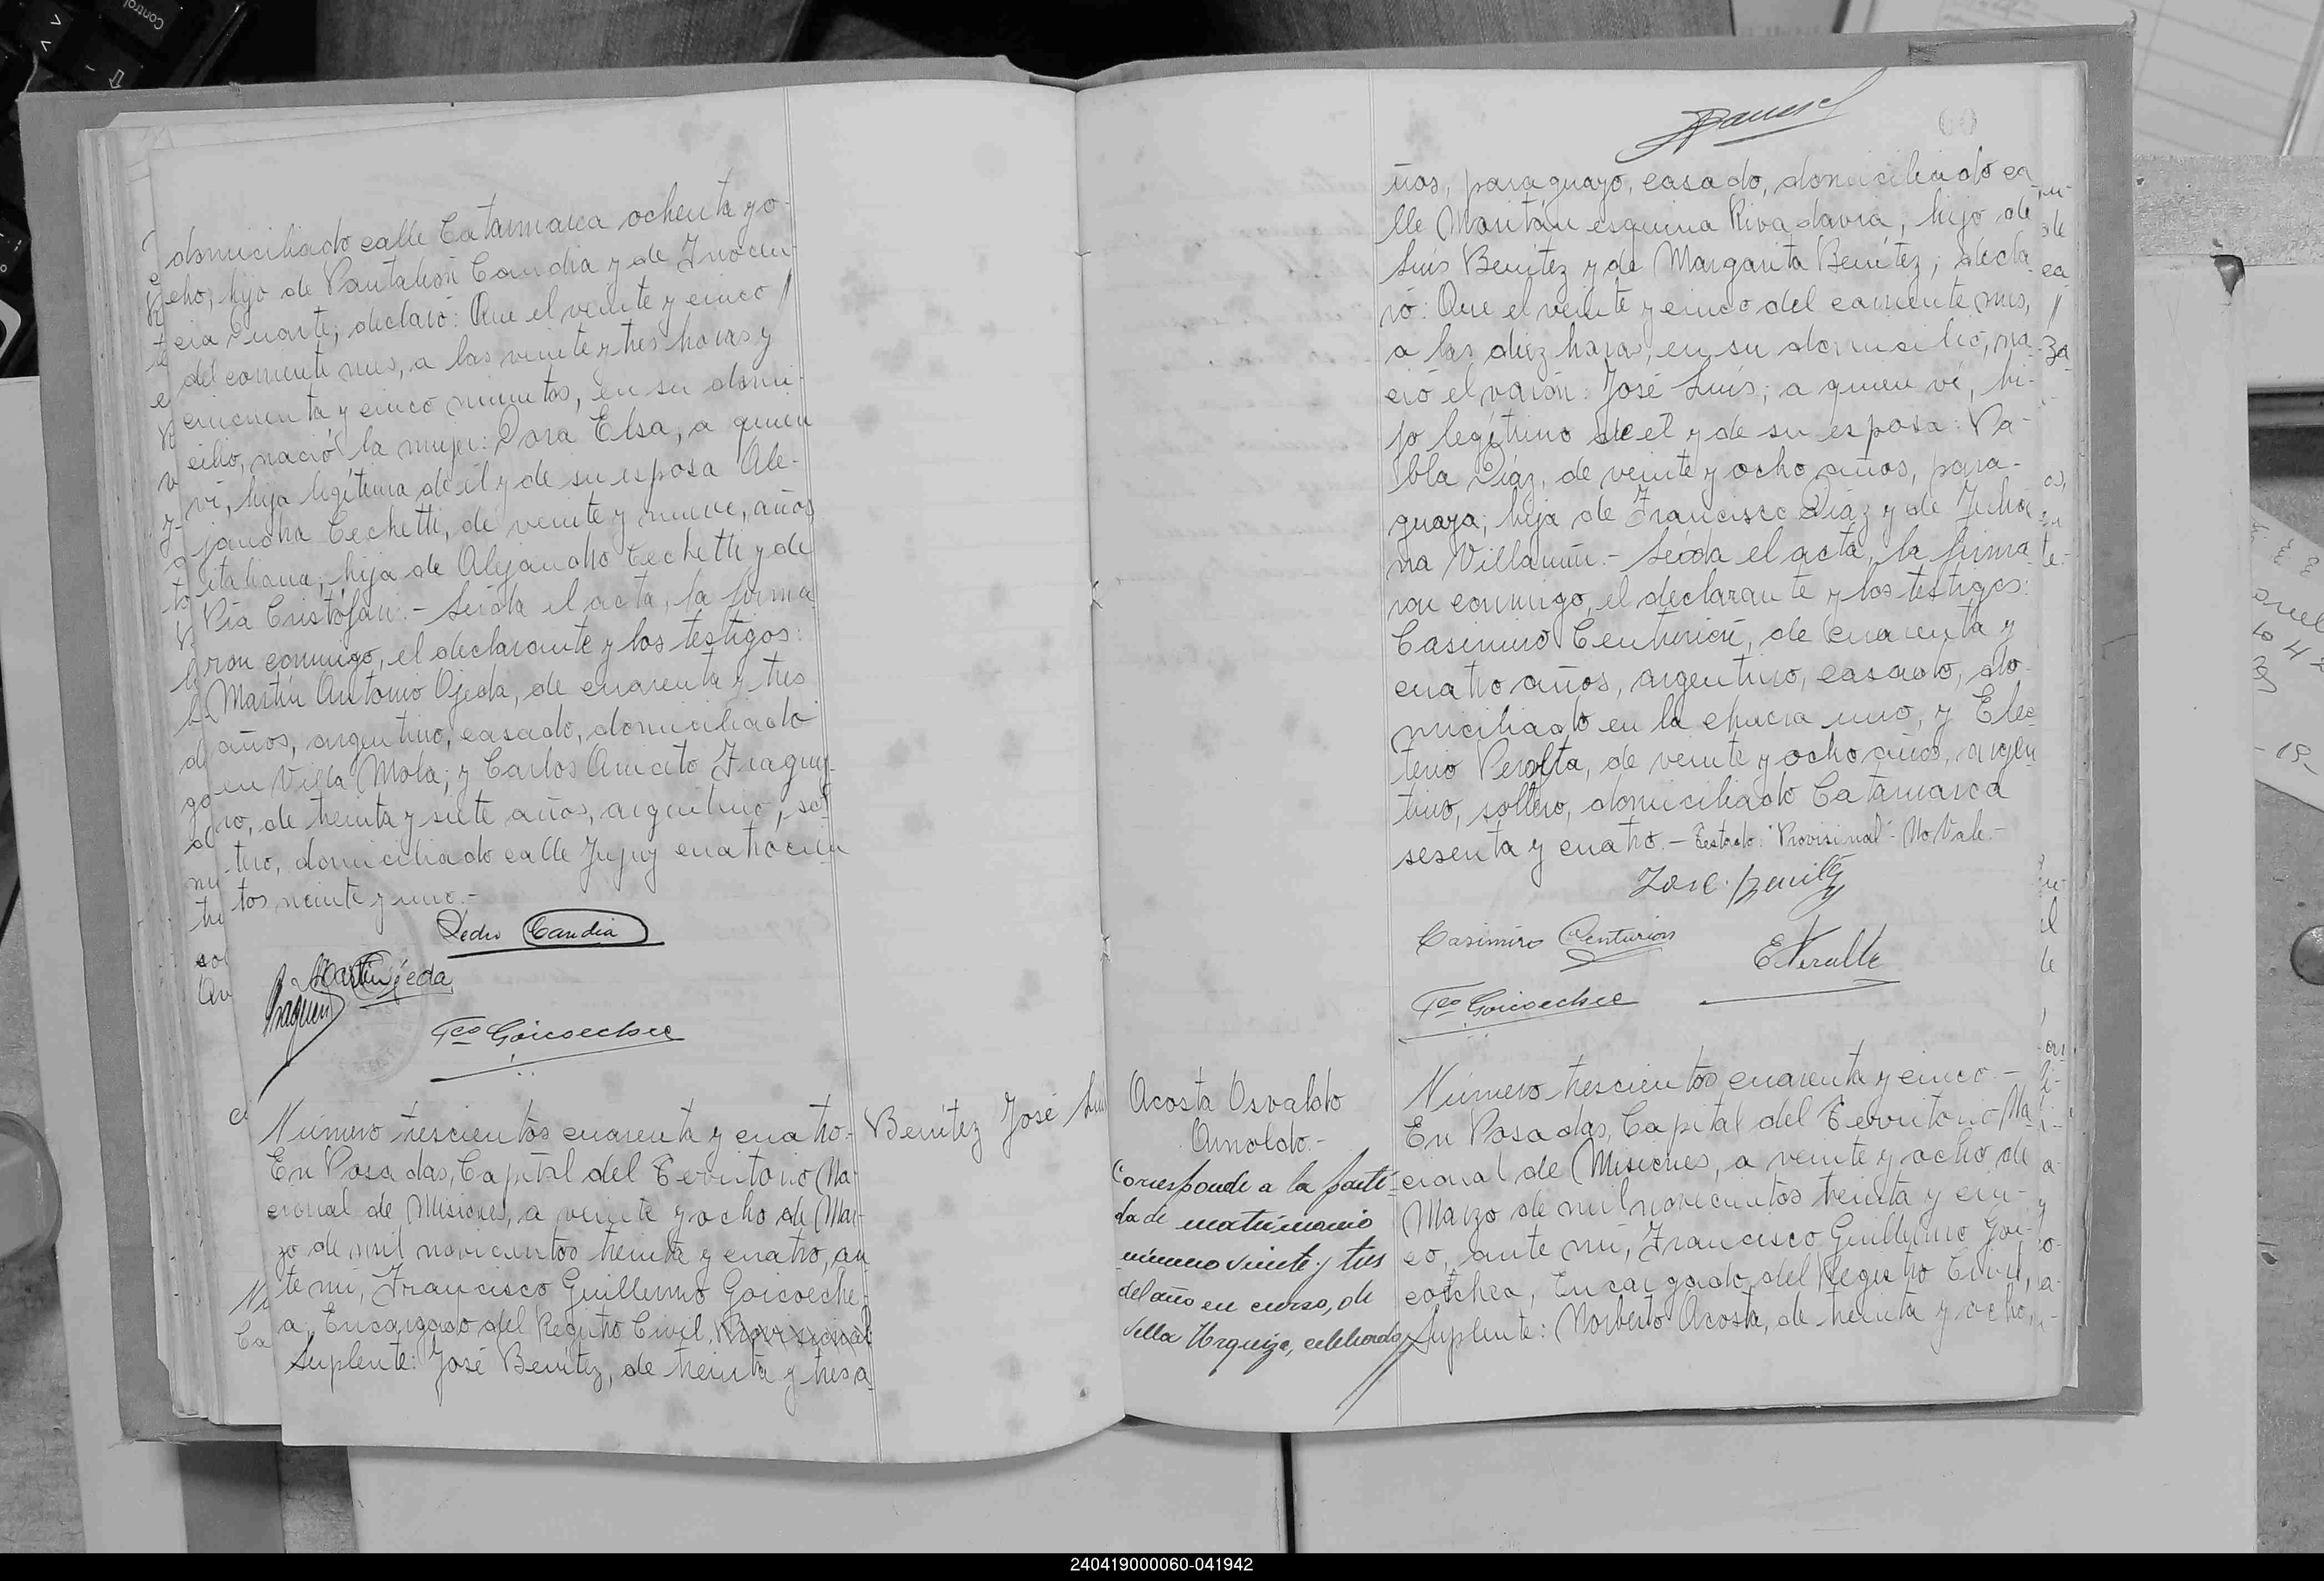 domiciliado calle Catamarca ochenta y o-
cho, hijo de Pantaleón Candia y de Inocen-
cia Duarte; declaró: Que el veinte y cinco
del corriente mes, a las veinte y tres horas y
cincuenta y cinco minutos, en su domi-
cilio, nació la mujer: Dora Elsa, a quien
vi, hija legítima de él y de su esposa Ale-
jandra Cechetti, de veinte y nueve, años
italiana; hija de Alejandro Cechetti y de
Pia Cristófari.- Leída el acta, la firma-
ron conmigo, el declarante y los testigos:
Martín Antonio Ojeda, de cuarenta y tres
años, argentino, casado, domiciliado
en Villa Mola; y Carlos Aniceto Fraguei-
ro, de treinta y siete años, argentino, sol-
tero, domiciliado calle Jujuy cuatrocien
tos veinte y uno.-
Pedro Candia
Martin Ojeda
Fco Goicoechea
Número trescientos cuarenta y cuatro-
En Posadas, Capital del Territorio Na-
cional de Misiones, a veinte y ocho de Mar-
zo de mil novecientos treinta y cuatro, an
te mi, Francisco Guillermo Goicoeche-
a, Encargado del Registro Civil, Provisional
Suplente: José Benítez, de treinta y tres a
Benítez José Luis
ños, paraguayo, casado, domiciliado ca
lle Maritán esquina Rivadavia, hijo de
Luis Benítez y de Margarita Benítez; decla
ró: Que el veinte y cinco del corriente mes,
a las diez horas, en su domicilio, na-
ció el varón: José Luis; a quien vi, hi-
jo legítimo de el y de su esposa: Pa-
bla Díaz, de veinte y ocho años, para-
guaya; hija de Francisco Díaz y de
na - Leída el acta, la firma
ron conmigo, el declarante y los testigos:
Casimiro Centurión, de cuarenta y
cuatro años, argentino, casado, do-
miciliado en la chacra uno, y Eleu
terio Peralta, de veinte y ocho años, argen
tino, soltero, domiciliado Catamarca
sesenta y cuatro.- Testado: "Provisional"- No Vale.-
José Benítez
Casimiro Centurion
E Peralta
Fco Goicoechea
Acosta Osvaldo
Arnoldo.-
Corresponde a la parti-
da de matrimonio
número veinte y tres
del año en curso, de
Villa Urquiza, celebrado
Número trescientos cuarenta y cinco.-
En Posadas, Capital del Territorio Na
cional de Misiones, a veinte y ocho de
Marzo de mil novecientos treinta y cin-
co, ante mi, Francisco Guillermo Goi-
cochea, Encargado del Registro Civil,
Suplente: Norberto Acosta, de treinta y ocho,
240419000060-041942